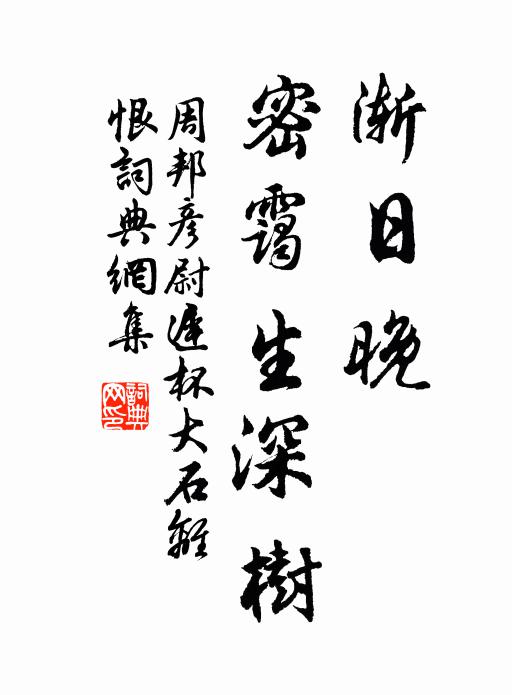 漸日晚
密靄生深樹
周邦彥尉遲杯大石離
恨詞典網集
詞典網印